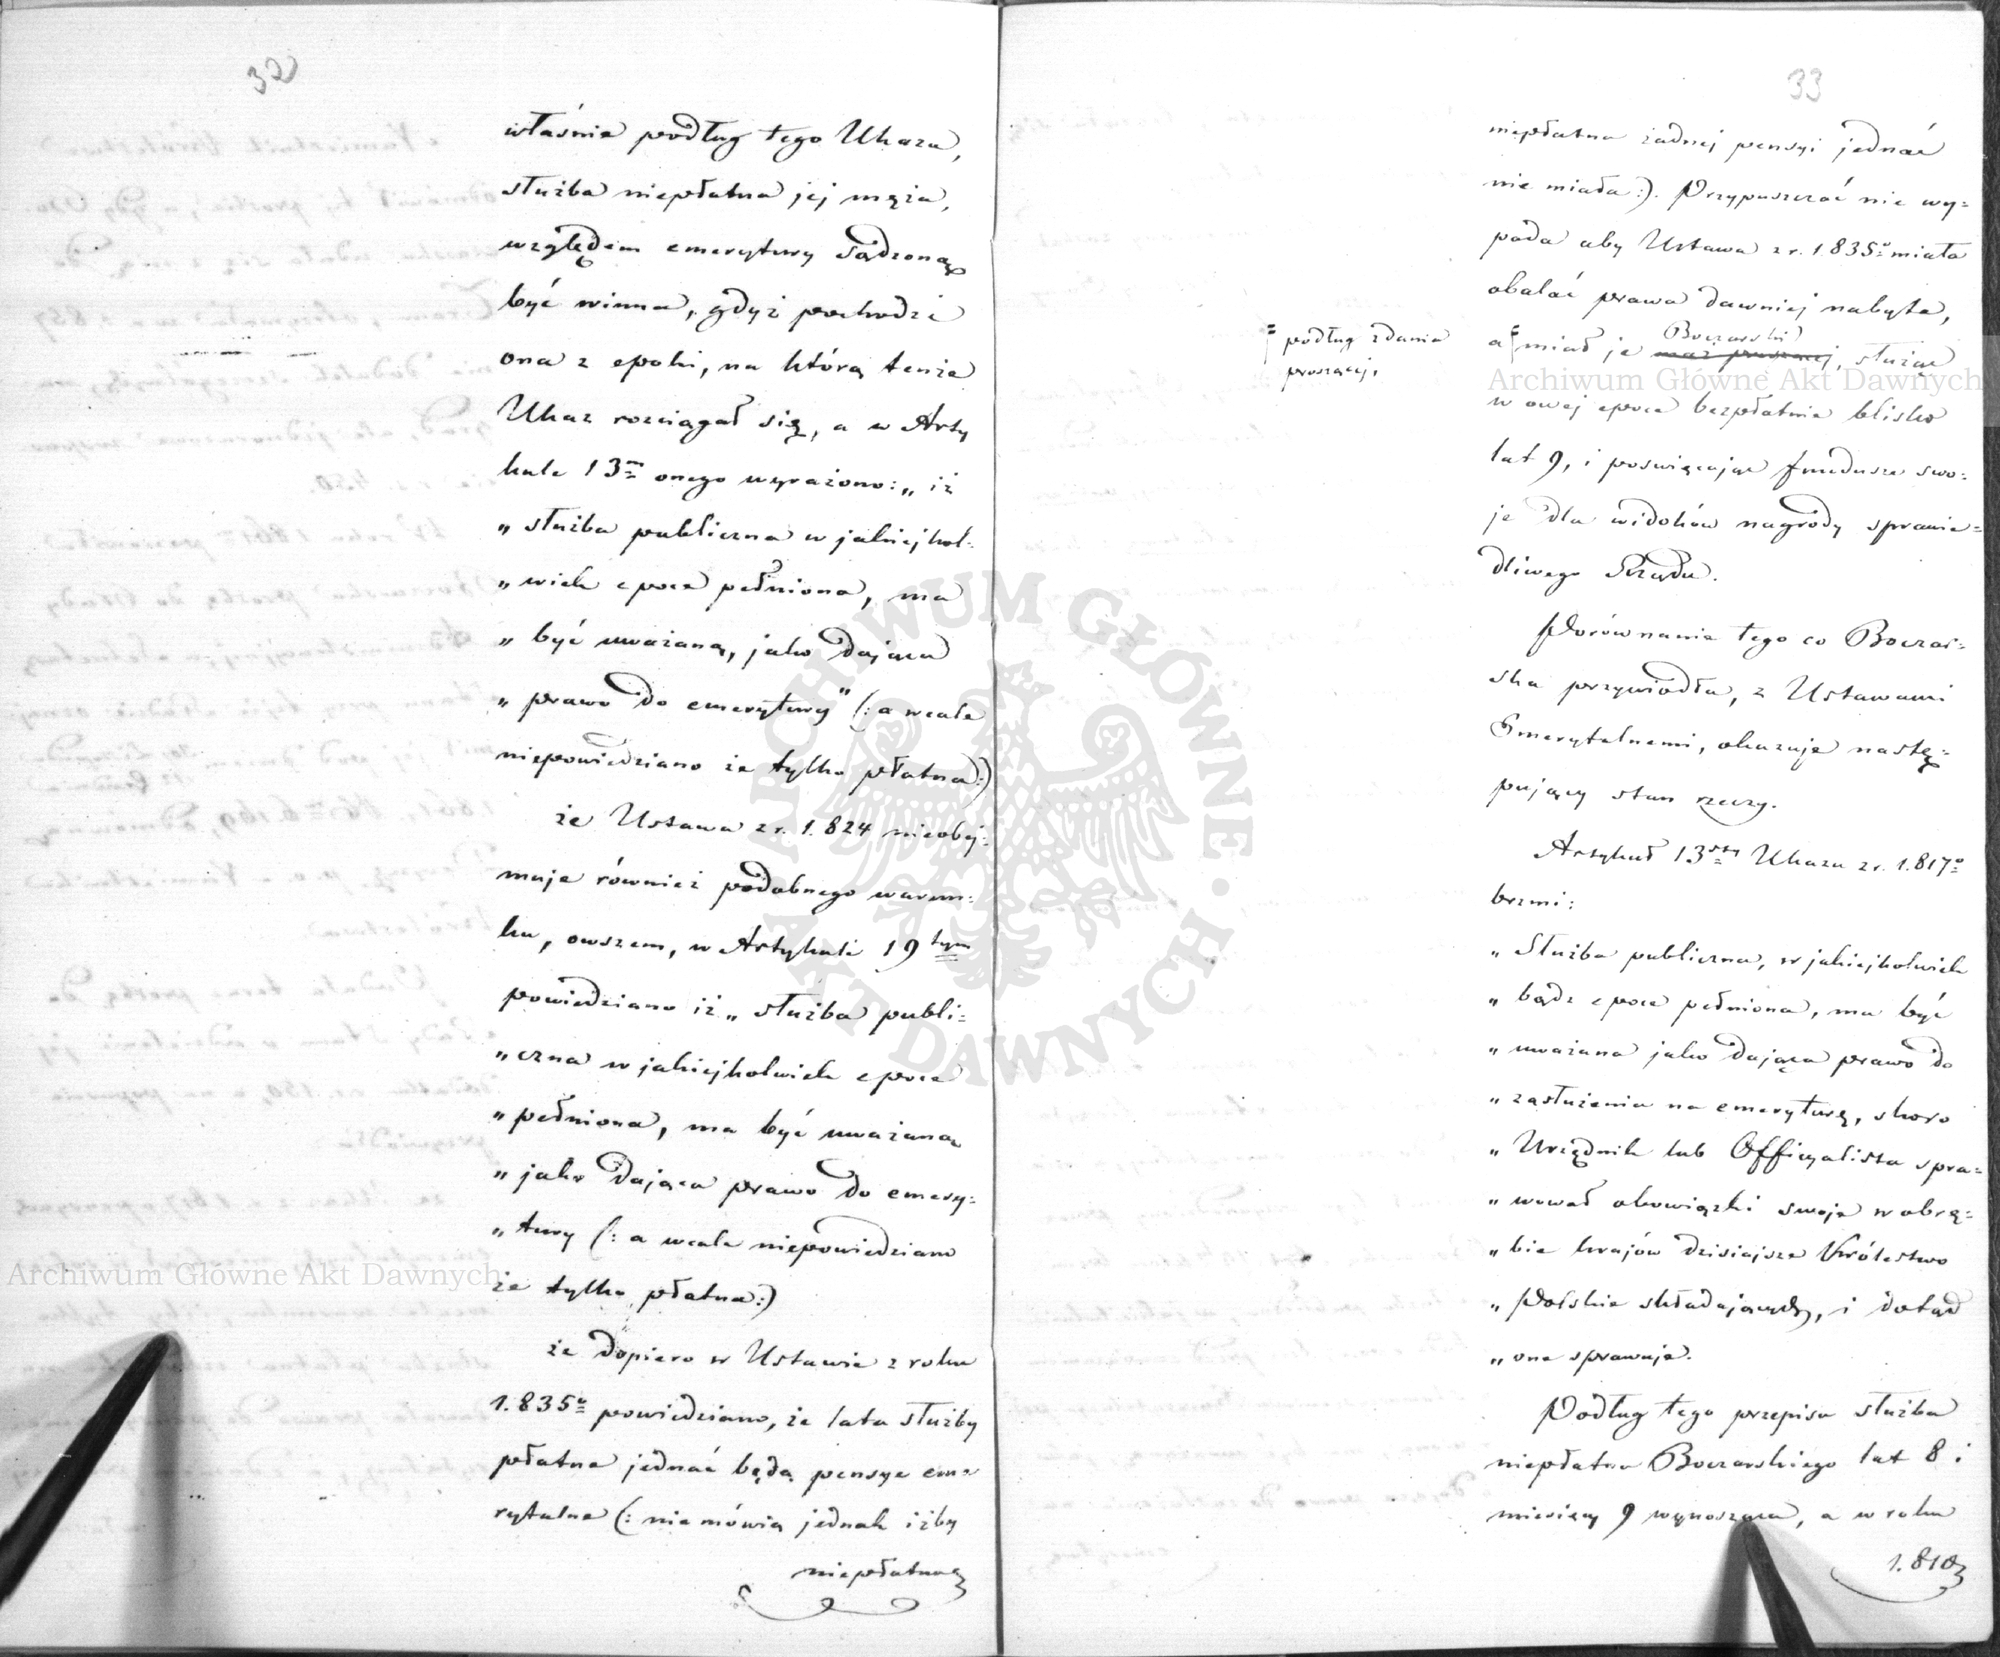 32
właśnie podług tego Ukazu,
służba niepłatna jej męża,
względem emerytury sądzoną
być winna, gdyż pochodzi
ona z epoki, na którą tenże
Ukaz rozciągał się, a w Arty
kule 13m onego wyrażono: „ iż
„ służba publiczna w jakiejkol-
„ wiek epoce pełniona, ma
„ być uważaną, jako dająca
„ prawo do emerytury" (: a wcale
niepowiedziano że tylko płatna:)
że Ustawa z r. 1.824 nieobej-
muje również podobnego warun-
ku, owszem, w Artykule 19tym
powiedziano iż „ służba publi-
„ czna w jakiejkolwiek epoce
„ pełniona, ma być uważaną
„ jako dająca prawo do emery-
„ tury (: a wcale niepowiedziano
że tylko płatna:)
że dopiero w Ustawie z roku
1.835o powiedziano, że lata służby
płatne jednać będą pensye eme
rytalne (: nie mówią jednak iżby
niepłatna
33
niepłatna żadnej pensyi jednać
nie miała:). Przypuszczać nie wy-
pada aby Ustawa z r. 1.835o miała
obalać prawa dawniej nabyte,
podług zdania
proszącej,
Boczarski
a miał je mąż proszącej, służąc
w owej epoce bezpłatnie blisko
lat 9, i poswięcając fundusze swo-
je dla widoków nagrody sprawie-
dliwego Rządu.
Porównanie tego co Boczar-
ska przywiodła, z Ustawami
Emerytalnemi, okazuje nastę-
pujący stan rzeczy.
Artykuł 13sty Ukazu z r. 1.817o
brzmi:
„ Służba publiczna, w jakiejkolwiek
„ bądz epoce pełniona, ma być
„ uważana jako dająca prawo do
„ zasłużenia na emeryturę, skoro
„ Urzędnik lub Officyalista spra-
„ wował obowiązki swoje w obrę-
„ bie krajów dzisiejsze Królestwo
„ Polskie składających, i dotąd
„ one sprawuje.
Podług tego przepisu służba
niepłatna Boczarskiego lat 8 i
miesięcy 9 wynosząca, a w roku
1.810
ARCHIWUM GŁÓWNE AKT DAWNYCH
Archiwum Główne Akt Dawnych
Archiwum Główne Akt Dawnych